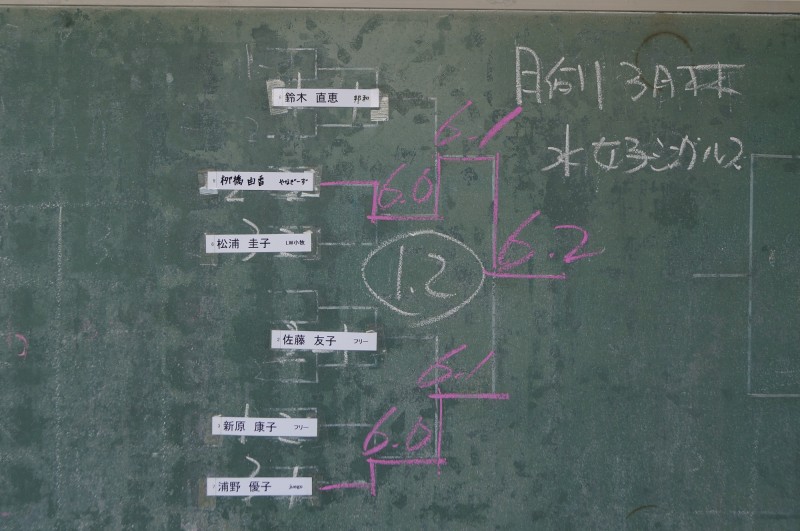 月例 3月末
水 女子シングルス
鈴木 直恵 邦和
6.1
柳橋 由香 やなぎーず
6.0
松浦 圭子 LW小牧
6.2
1.2
佐藤 友子 フリー
6.1
新原 康子 フリー
6.0
浦野 優子